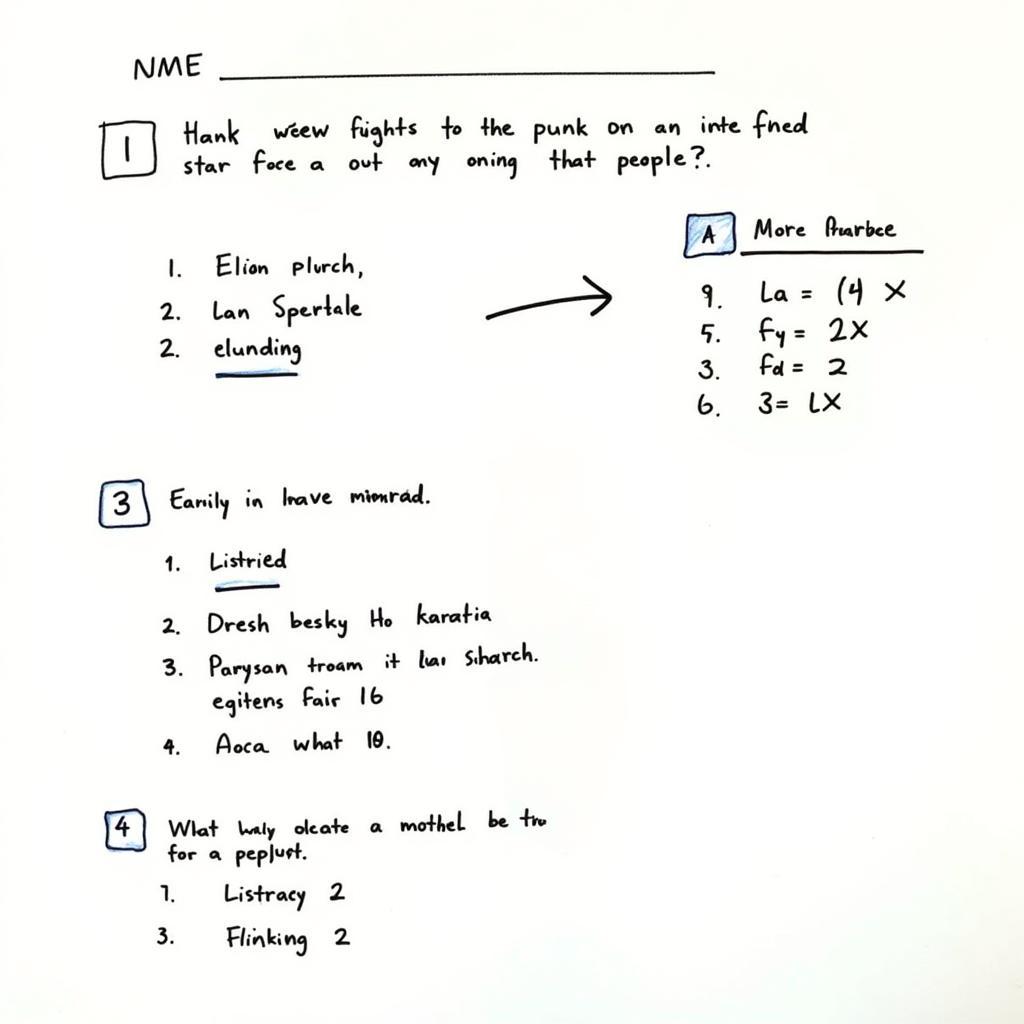 NME
1 Hank weew fuights to the punk on an inte fned
star foce a out any oning that people?.
1. Elion plurch,
2. Lan Spertale
2. elunding
A More
9. La = (4 X
5. fy = 2X
3. fd = 2
6. 3 = LX
3 Earily in have
1. Listried
2. Dresh besky Ho karatia
3. Parysan troam it Sharch.
egitens fair 16
4. Aoca what 10.
4 What olcate a mothel be
for a
1. Listracy 2
3. Flinking 2